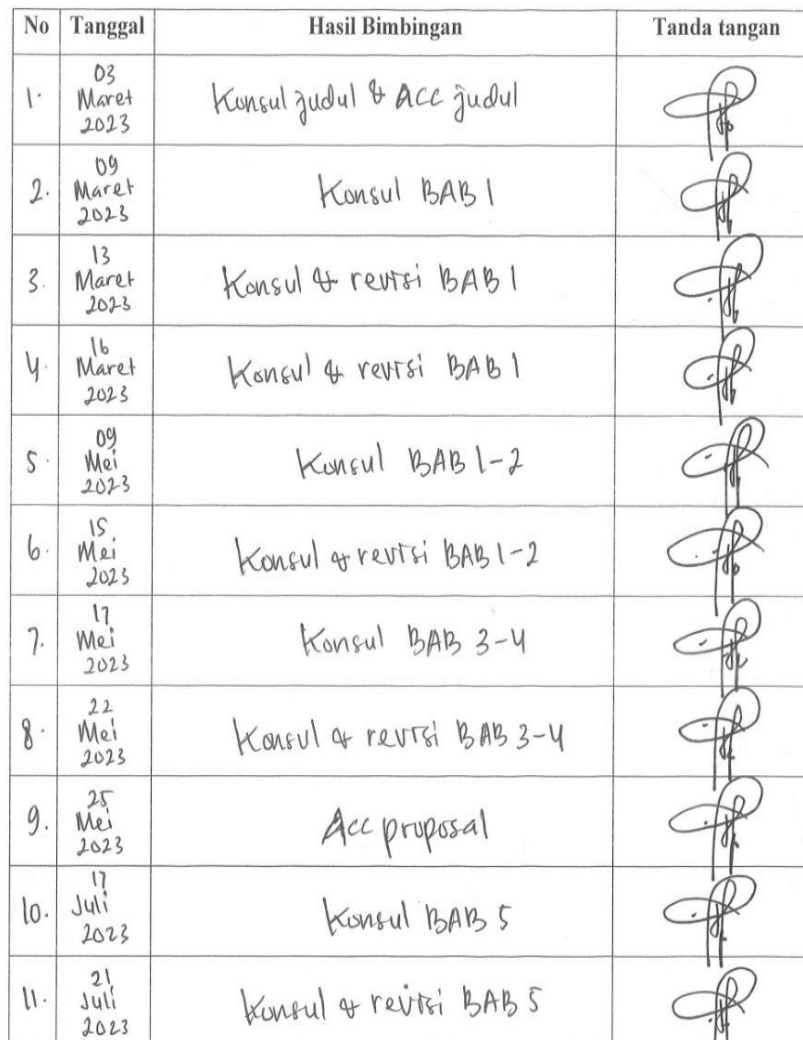 No Tanggal Hasil Bimbingan Tanda tangan
1. 03 Maret 2023 Konsul judul & Acc judul
2. 09 Maret 2023 Konsul BAB 1
3. 13 Maret 2023 Konsul & revisi BAB 1
4. 16 Maret 2023 Konsul & revisi BAB 1
5. 09 Mei 2023 Konsul BAB 1-2
6. 15 Mei 2023 Konsul & revisi BAB 1-2
7. 17 Mei 2023 Konsul BAB 3-4
8. 22 Mei 2023 Konsul & revisi BAB 3-4
9. 25 Mei 2023 Acc proposal
10. 17 Juli 2023 Konsul BAB 5
11. 21 Juli 2023 Konsul & revisi BAB 5